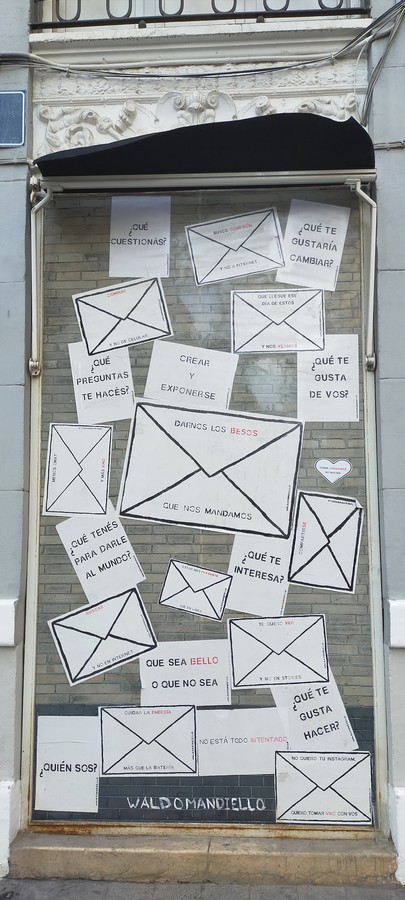 ¿QUÉ
CUESTIONÁS?
MENOS CONEXIÓN
Y NO A INTERNET
¿QUÉ TE
GUSTARÍA
CAMBIAR?
Y NO DE CELULAR
QUE LLEGUE ESE
DÍA DE ESTOS
Y NOS VEAMOS
¿QUÉ
PREGUNTAS
TE HACÉS?
CREAR
Y
EXPONERSE
¿QUÉ TE
GUSTA
DE VOS?
DARNOS LOS BESOS
QUE NOS MANDAMOS
MENOS LIKE
Y MÁS
COMPARTIRSE
¿QUÉ TENÉS
PARA DARLE
AL MUNDO?
¿QUÉ TE
INTERESA?
Y NO EN INTERNET
TE QUIERO VER
Y NO EN STORIES
QUE SEA BELLO
O QUE NO SEA
¿QUÉ TE
GUSTA
HACER?
CUIDAR LA ENERGÍA
MÁS QUE LA BATERÍA
NO ESTÁ TODO INTENTADO
¿QUIÉN SOS?
NO QUIERO TU INSTAGRAM,
QUIERO TOMAR VINO CON VOS
WALDOMANDIELLO